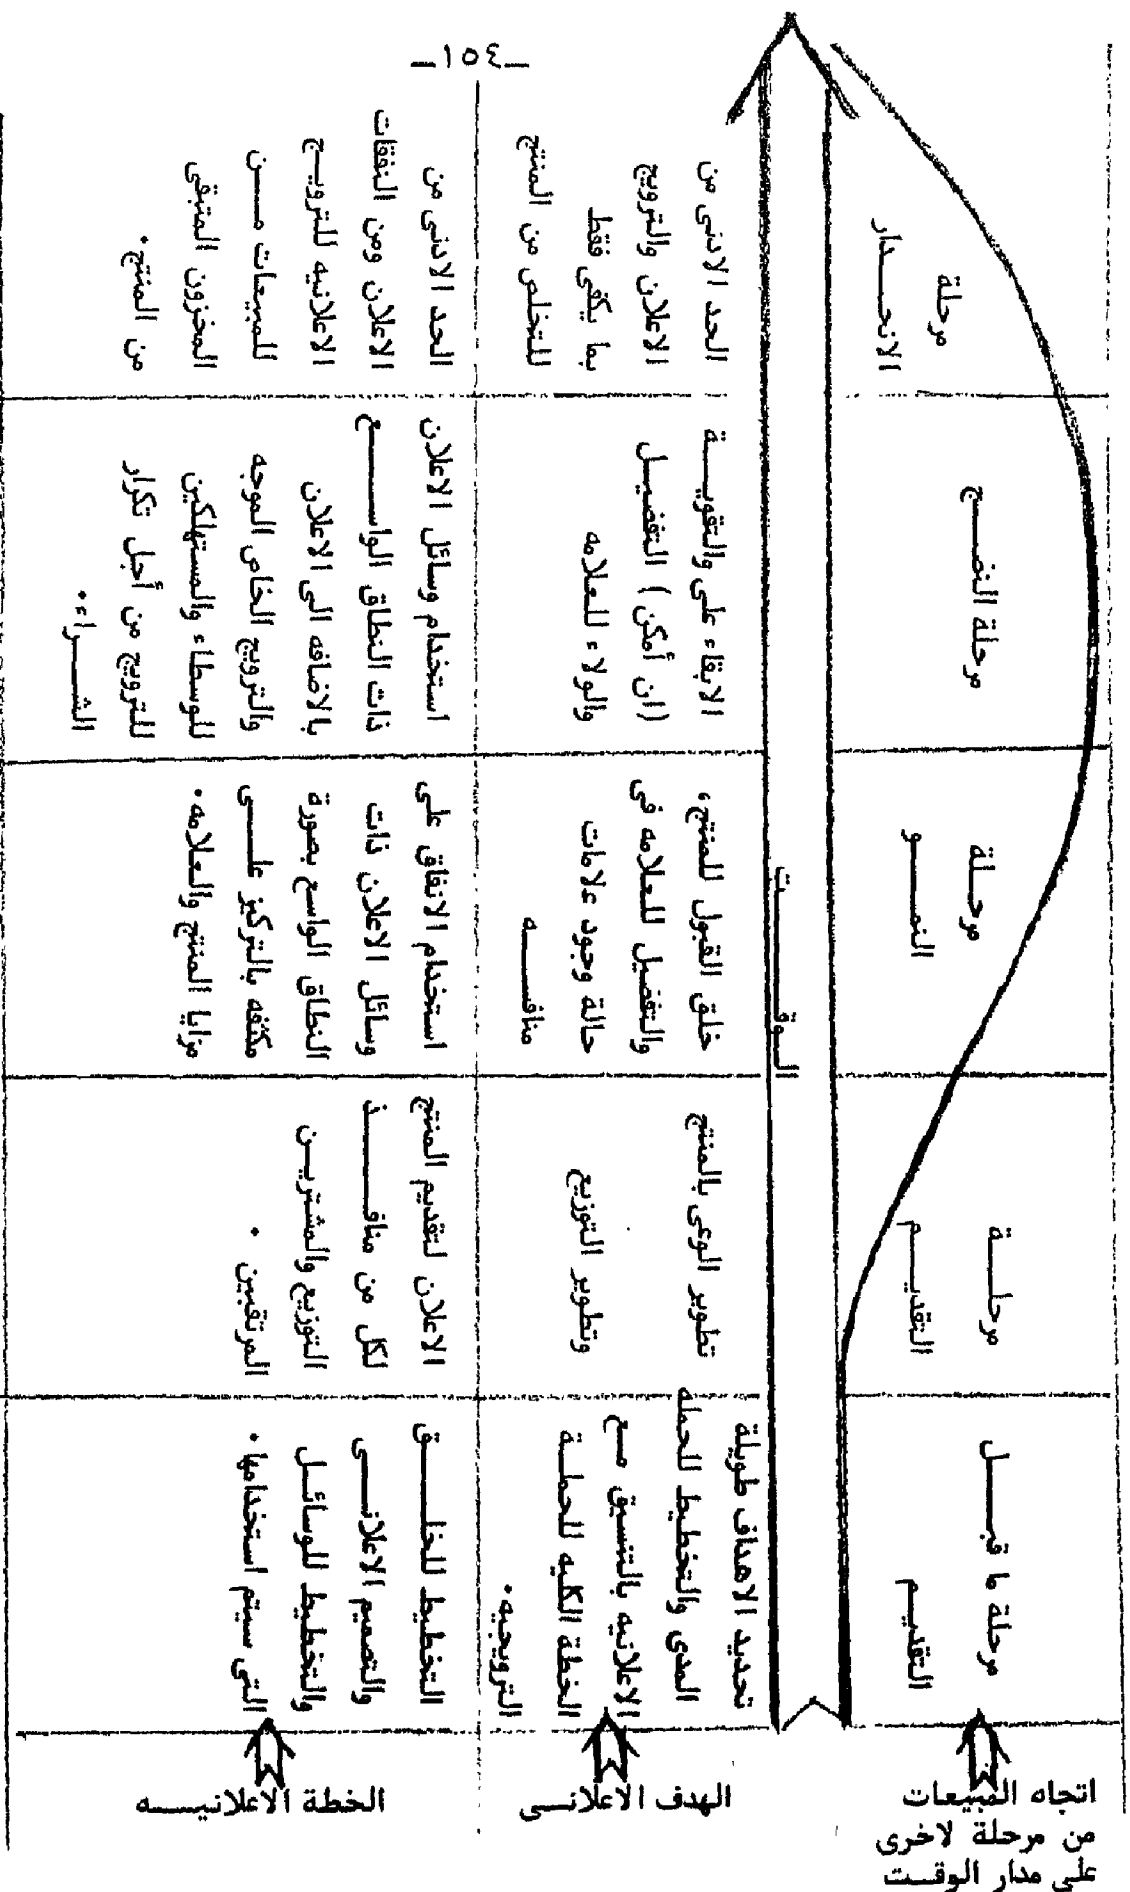 ـ١٥٤ـ
اتجاه المبيعات
من مرحلة لاخرى
على مدار الوقــت
مرحلة ما قبــــل
التقديـــم
مرحلـــة
التقديـــم
مرحلــة
النمـــو
مرحلة النضــــج
مرحلة
الانحــــدار
الـوقـــــــت
الهدف الاعلانــى
تحديد الاهداف طويلة
المدى والتخطيط للحمله
الاعلانيه بالتنسيق مــع
الخطة الكليه للحملــة
الترويجيه.
تطوير الوعى بالمنتج
وتطوير التوزيع
خلق القبول للمنتج،
والتفضيل للعلامه فى
حالة وجود علامات
منافســـه
الابقاء على والتقويـــة
(ان أمكن) التفضيــل
والولاء للعلامه
الحد الادنى من
الاعلان والترويج
بما يكفى فقط
للتخلص من المنتج
الخطة الاعلانيـــه
التخطيط للخلــــق
والتصميم الاعلانــــى
والتخطيط للوسائــل
التى سيتم استخدامها.
الاعلان لتقديم المنتج
لكل من منافــــــذ
التوزيع والمشتريــن
المرتقبين .
استخدام الانفاق على
وسائل الاعلان ذات
النطاق الواسع بصورة
مكثفه بالتركيز علــــى
مزايا المنتج والعلامه.
استخدام وسائل الاعلان
ذات النطاق الواســــع
بالاضافه الى الاعلان
والترويج الخاص الموجه
للوسطاء والمستهلكين
للترويج من أجل تكرار
الشــــراء.
الحد الادنى من
الاعلان ومن النفقات
الاعلانيه للترويــج
للمبيعات مــــن
المخزون المتبقى
من المنتج.